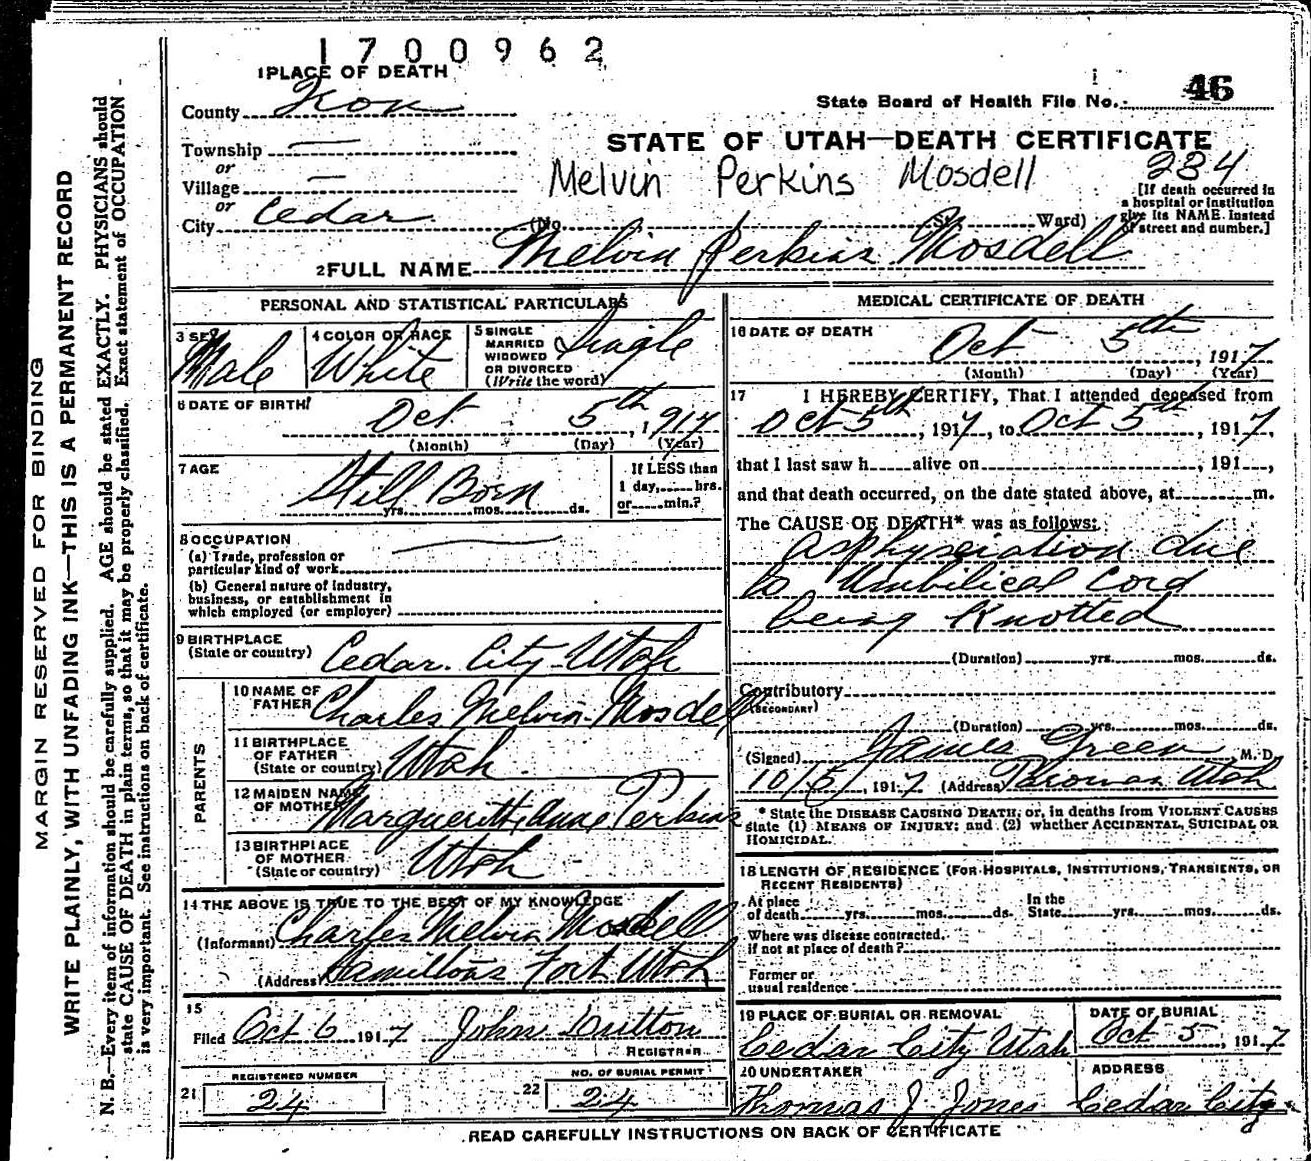 1700962
1 PLACE OF DEATH
County Iron
State Board of Health File No. 46
STATE OF UTAH—DEATH CERTIFICATE
Township —
or
Village —
or
City Cedar
Melvin Perkins Mosdell
234
[If death occurred in
a hospital or institution
give its NAME instead
of street and number.]
(No. St. Ward)
2 FULL NAME Melvin Perkins Mosdell
PERSONAL AND STATISTICAL PARTICULARS
3 SEX Male
4 COLOR OR RACE White
5 SINGLE
MARRIED
WIDOWED
OR DIVORCED
(Write the word)
Single
6 DATE OF BIRTH
Oct 5th, 1917
(Month) (Day) (Year)
7 AGE
Still Born
yrs. mos. ds.
If LESS than
1 day, hrs.
or min.?
8 OCCUPATION
(a) Trade, profession or
particular kind of work
(b) General nature of industry,
business, or establishment in
which employed (or employer)
9 BIRTHPLACE
(State or country) Cedar City Utah
PARENTS
10 NAME OF
FATHER Charles Melvin Mosdell
11 BIRTHPLACE
OF FATHER
(State or country) Utah
12 MAIDEN NAME
OF MOTHER Perkins
13 BIRTHPLACE
OF MOTHER
(State or country) Utah
14 THE ABOVE IS TRUE TO THE BEST OF MY KNOWLEDGE
(Informant) Charles Melvin Mosdell
(Address) Hamiltons Fort Utah
15
Filed Oct 6 1917 John
REGISTRAR
21 REGISTERED NUMBER
24
22 NO. OF BURIAL PERMIT
24
MEDICAL CERTIFICATE OF DEATH
16 DATE OF DEATH
Oct 5th, 1917
(Month) (Day) (Year)
17 I HEREBY CERTIFY, That I attended deceased from
Oct 5th, 1917, to Oct 5th, 1917,
that I last saw h alive on , 191 ,
and that death occurred, on the date stated above, at m.
The CAUSE OF DEATH* was as follows:
Asphyxiation due
to Umbilical Cord
being Knotted
(Duration) yrs. mos. ds.
Contributory
(SECONDARY)
(Duration) yrs. mos. ds.
(Signed) James Green M. D.
10/5, 1917 (Address) Utah
* State the DISEASE CAUSING DEATH; or, in deaths from VIOLENT CAUSES
state (1) MEANS OF INJURY; and (2) whether ACCIDENTAL, SUICIDAL OR
HOMICIDAL.
18 LENGTH OF RESIDENCE (FOR HOSPITALS, INSTITUTIONS, TRANSIENTS, OR
RECENT RESIDENTS)
At place
of death yrs. mos. ds.
In the
State yrs. mos. ds.
Where was disease contracted,
if not at place of death?
Former or
usual residence
19 PLACE OF BURIAL OR REMOVAL
Cedar City Utah
DATE OF BURIAL
Oct 5, 1917
20 UNDERTAKER
Thomas J Jones
ADDRESS
Cedar City
READ CAREFULLY INSTRUCTIONS ON BACK OF CERTIFICATE
MARGIN RESERVED FOR BINDING
WRITE PLAINLY, WITH UNFADING INK—THIS IS A PERMANENT RECORD
N. B.—Every item of information should be carefully supplied. AGE should be stated EXACTLY. PHYSICIANS should
state CAUSE OF DEATH in plain terms, so that it may be properly classified. Exact statement of OCCUPATION
is very important. See instructions on back of certificate.